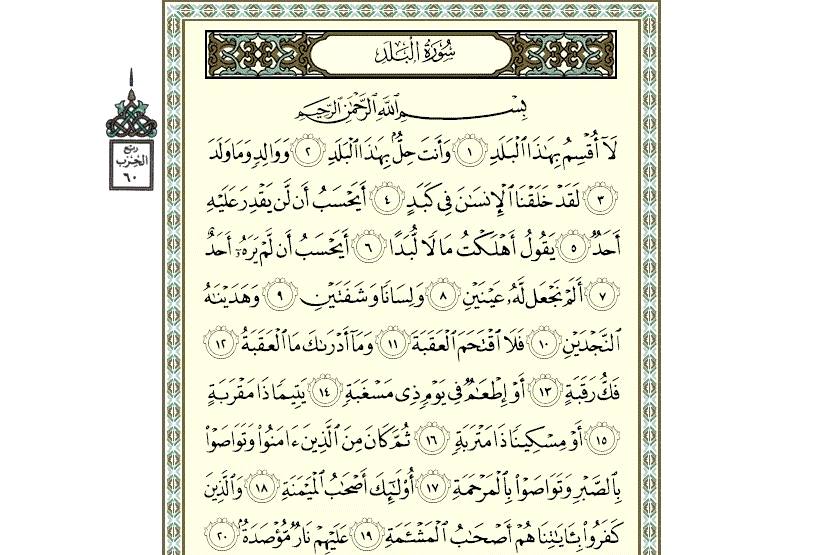 سُورَةُ الْبَلَدِ
بِسْمِ اللَّهِ الرَّحْمَٰنِ الرَّحِيمِ
لَآ أُقْسِمُ بِهَٰذَا ٱلْبَلَدِ ١ وَأَنتَ حِلٌّۢ بِهَٰذَا ٱلْبَلَدِ ٢ وَوَالِدٍ وَمَا وَلَدَ
٣ لَقَدْ خَلَقْنَا ٱلْإِنسَٰنَ فِى كَبَدٍ ٤ أَيَحْسَبُ أَن لَّن يَقْدِرَ عَلَيْهِ
أَحَدٌ ٥ يَقُولُ أَهْلَكْتُ مَالًا لُّبَدًا ٦ أَيَحْسَبُ أَن لَّمْ يَرَهُۥٓ أَحَدٌ
٧ أَلَمْ نَجْعَل لَّهُۥ عَيْنَيْنِ ٨ وَلِسَانًا وَشَفَتَيْنِ ٩ وَهَدَيْنَٰهُ
ٱلنَّجْدَيْنِ ١٠ فَلَا ٱقْتَحَمَ ٱلْعَقَبَةَ ١١ وَمَآ أَدْرَىٰكَ مَا ٱلْعَقَبَةُ ١٢
فَكُّ رَقَبَةٍ ١٣ أَوْ إِطْعَٰمٌ فِى يَوْمٍ ذِى مَسْغَبَةٍ ١٤ يَتِيمًا ذَا مَقْرَبَةٍ
١٥ أَوْ مِسْكِينًا ذَا مَتْرَبَةٍ ١٦ ثُمَّ كَانَ مِنَ ٱلَّذِينَ ءَامَنُوا۟ وَتَوَاصَوْا۟
بِٱلصَّبْرِ وَتَوَاصَوْا۟ بِٱلْمَرْحَمَةِ ١٧ أُو۟لَٰٓئِكَ أَصْحَٰبُ ٱلْمَيْمَنَةِ ١٨ وَٱلَّذِينَ
كَفَرُوا۟ بِـَٔايَٰتِنَا هُمْ أَصْحَٰبُ ٱلْمَشْـَٔمَةِ ١٩ عَلَيْهِمْ نَارٌ مُّؤْصَدَةٌۢ ٢٠
ربع
الحزب
٦٠